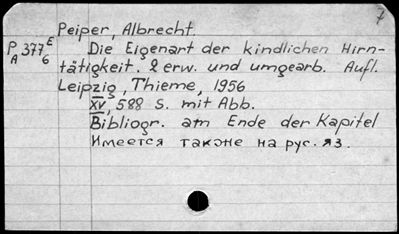 7
Peiper, Albrecht.
P/A 377 E/6 Die Eigenart der kindlichen Hirn-
tätigkeit. 2 erw. und umgearb. Aufl.
Leipzig, Thieme, 1956
XV, 588 S. mit Abb.
Bibliogr. am Ende der Kapitel
Имеется также на рус. яз.